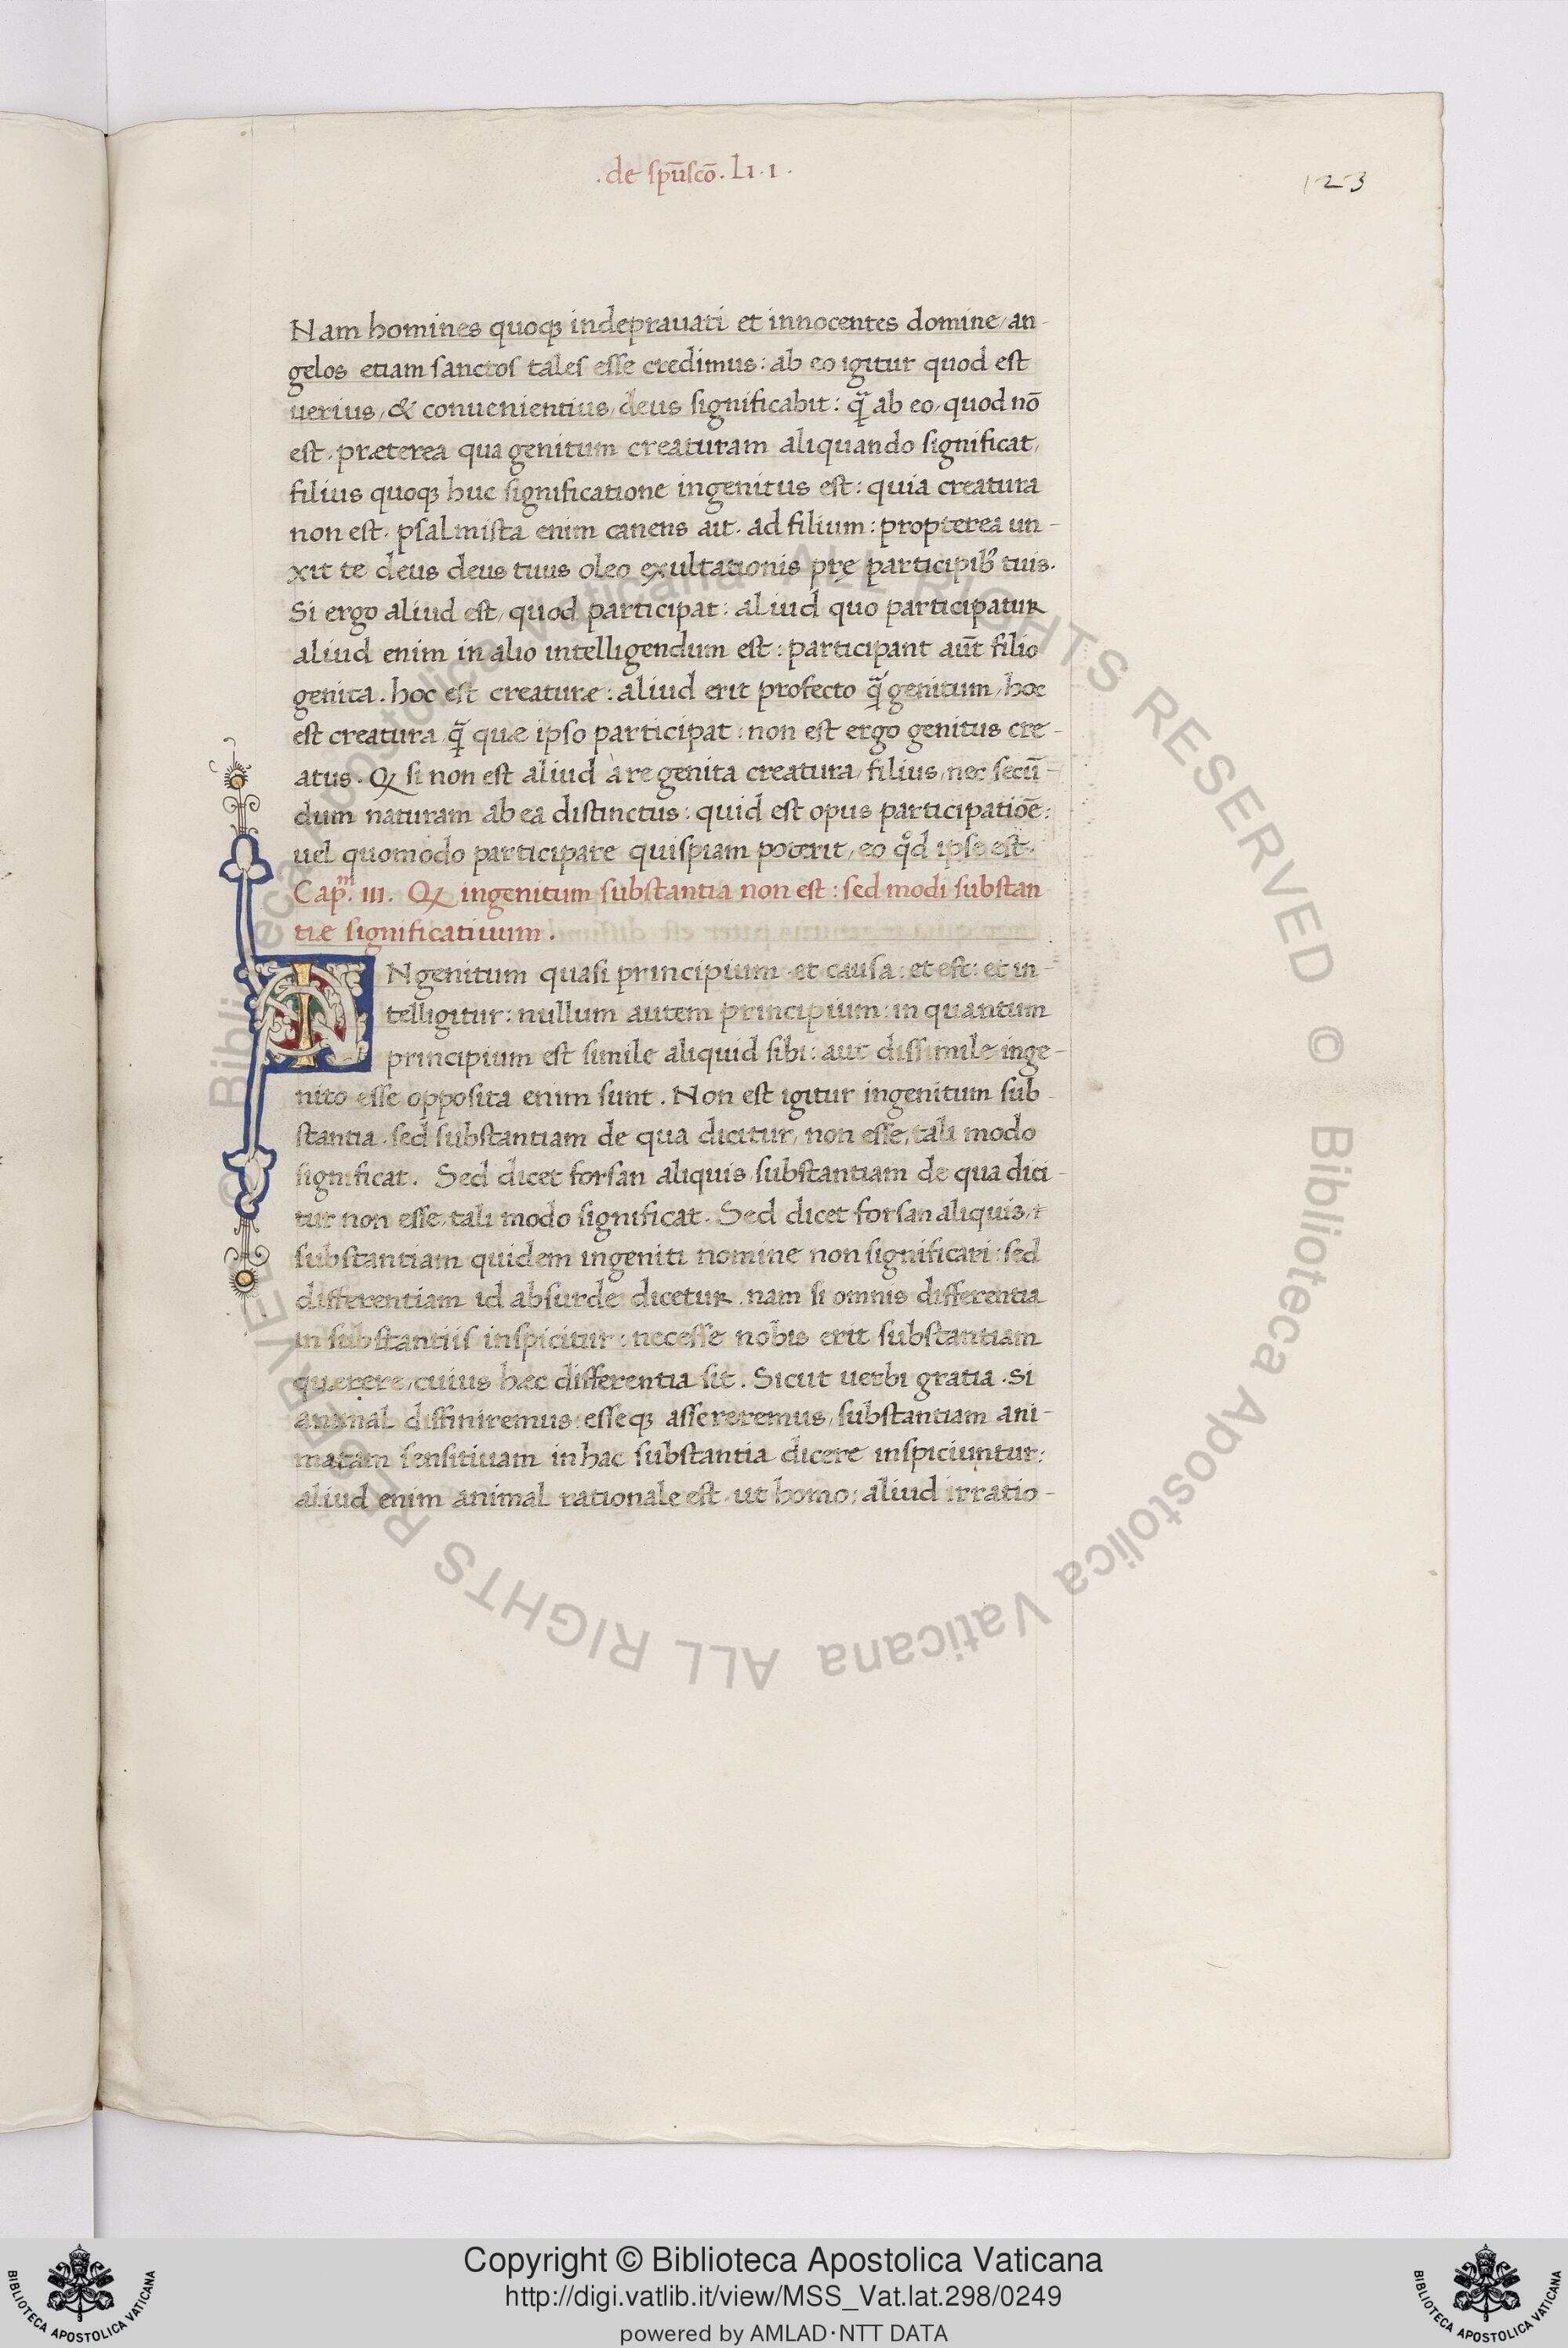 .de sp̄uscō. Lı.ı.
123
Nam homines quoqꝫ indeprauati et innocentes domine/an-
gelos etiam sanctos tales esse credimus: ab eo igitur quod est
uerius/& conuenientius/deus significabit: q̃ ab eo/quod nō
est. præterea qua genitum creaturam aliquando significat,
filius quoqꝫ huc significatione ingenitus est: quia creatura
non est. psalmista enim canens ait. ad filium: propterea un-
xit te deus deus tuus oleo exultationis prę participib᾿ tuis.
Si ergo aliud est/quod participat: aliud quo participatur
aliud enim in alio intelligendum est: participant aūt filio
genita. hoc est creaturæ: aliud erit profecto q̃ genitum/hoc
est creatura q̃ quæ ipso participat: non est ergo genitus cre-
atus. Qꝫ si non est aliud à re genita creatura/filius/nec secū-
dum naturam ab ea distinctus: quid est opus participatiōe:
uel quomodo participare quispiam poterit/eo qͦd ipse est.
Capᵐ. III. Qꝫ ingenitum substantia non est: sed modi substan
tiæ significatiuum.
INgenitum quasi principium et causa: et est: et in-
telligitur: nullum autem principium: in quantum
principium est simile aliquid sibi: aut dissimile inge-
nito esse opposita enim sunt. Non est igitur ingenitum sub-
stantia. sed substantiam de qua dicitur/non esse/tali modo
significat. Sed dicet forsan aliquis/substantiam de qua dici-
tur non esse/tali modo significat. Sed dicet forsan aliquis/
substantiam quidem ingeniti nomine non significari: sed
differentiam id absurde dicetur. nam si omnis differentia
in substantiis inspicitur: necesse nobis erit substantiam
quærere/cuius hæc differentia sit. Sicut uerbi gratia. Si
animal diffiniremus: esseqꝫ assereremus/substantiam ani-
matam sensitiuam in hac substantia dicere inspiciuntur:
aliud enim animal rationale est. ut homo: aliud irratio-
© Biblioteca Apostolica Vaticana ALL RIGHTS RESERVED
© Biblioteca Apostolica Vaticana ALL RIGHTS RESERVED
BIBLIOTECA APOSTOLICA VATICANA
Copyright © Biblioteca Apostolica Vaticana
http://digi.vatlib.it/view/MSS_Vat.lat.298/0249
powered by AMLAD·NTT DATA
BIBLIOTECA APOSTOLICA VATICANA